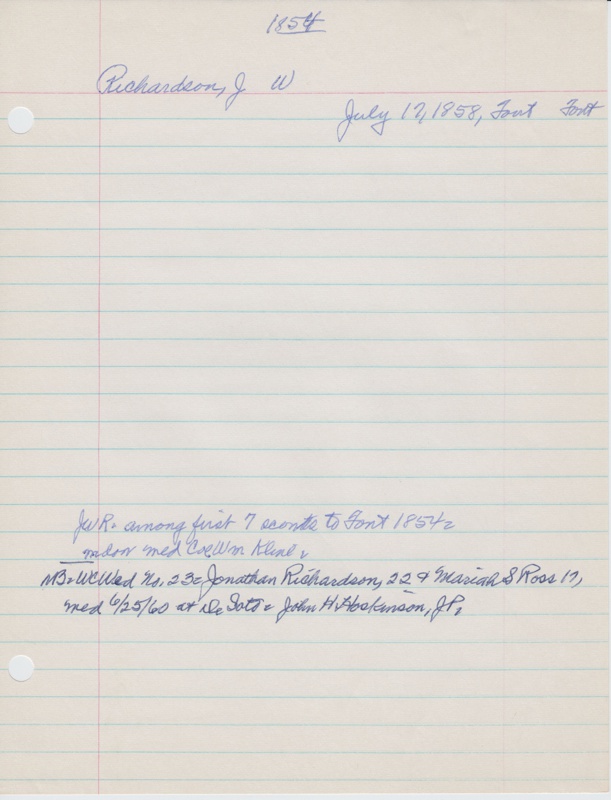 1854
Richardson, J W
July 17, 1858, Font Font
JWR. among first 7 scouts to Font 1854.
med Co Wm Kline.
NB. WCWed No. 23. Jonathan Richardson, 22 & Mariah S Ross 17,
med 6/25/60 at De Soto. John H. Hoskinson, J.P.